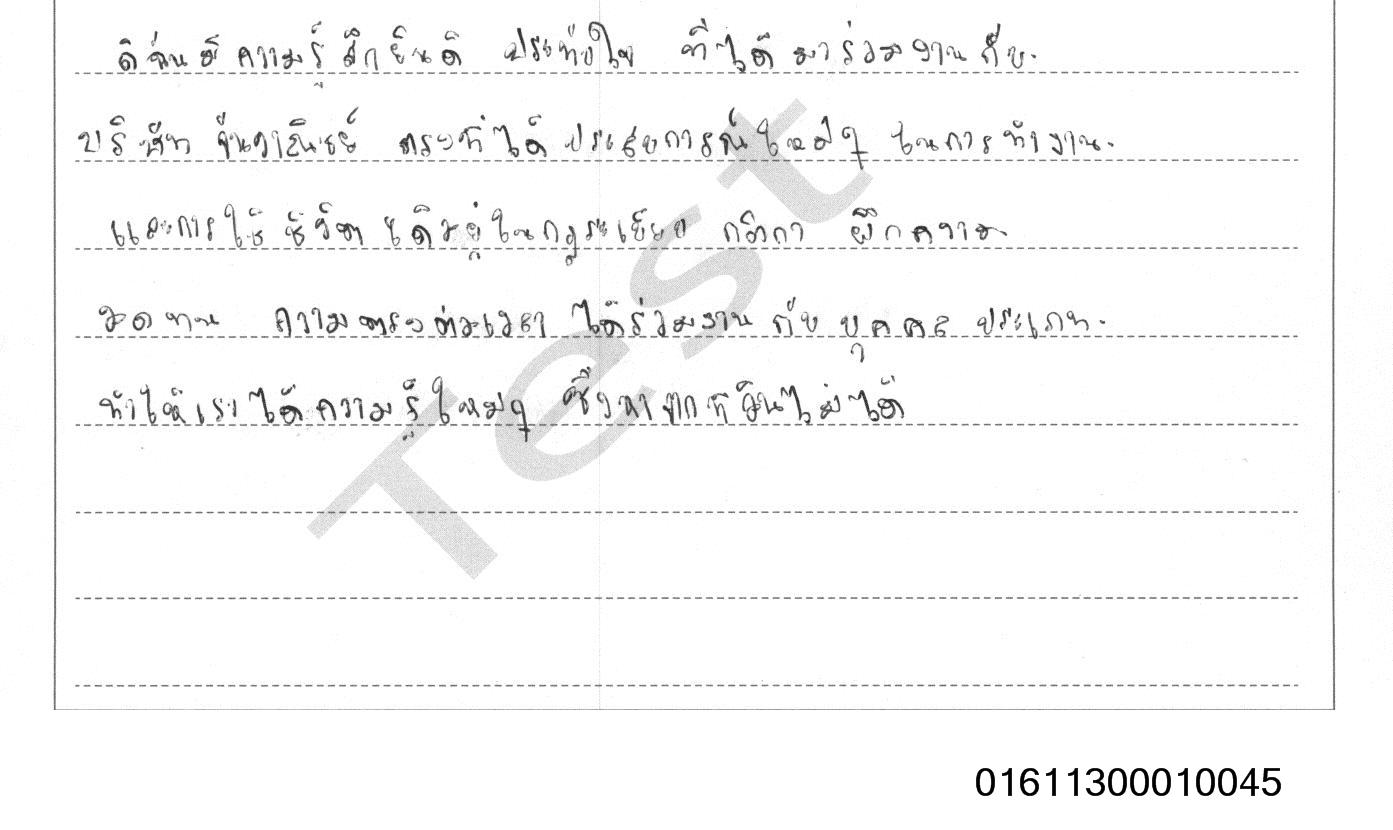 ดิฉันมีความรู้สึกยินดี ประทับใจ ที่ได้มาร่วมงานกับ
บริษัท จันวาณิชย์ ตรงที่ได้ประสบการณ์ใหม่ๆ ในการทำงาน
และการใช้ชีวิต ได้อยู่ในกฎระเบียบ กติกา ฝึกความ
อดทน ความตรงต่อเวลา ได้ร่วมงานกับบุคคล ประเภท
ทำให้เราได้ความรู้ใหม่ๆ ซึ่งหาจากที่อื่นไม่ได้
Test
01611300010045